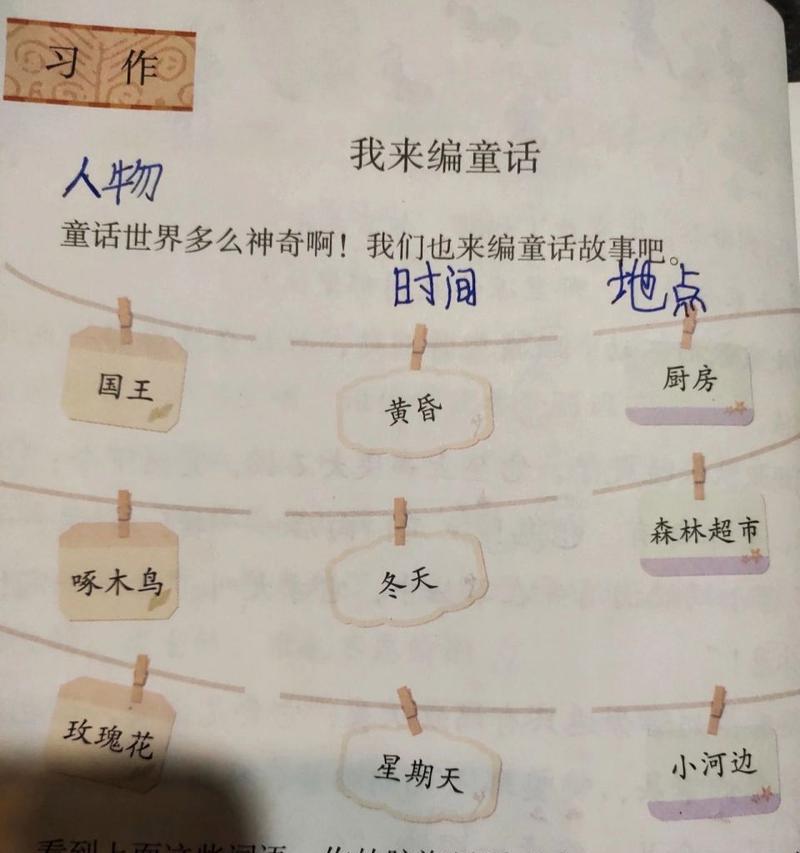 习 作
我来编童话
人物
童话世界多么神奇啊！我们也来编童话故事吧。
时间 地点
国王 黄昏 厨房
啄木鸟 冬天 森林超市
玫瑰花 星期天 小河边
看到上面这些词语，你的脑海